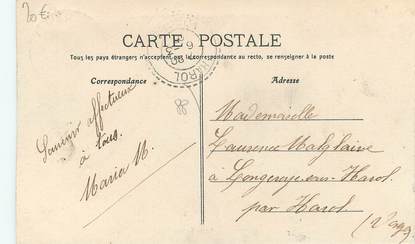 20 €
CARTE POSTALE
Tous les pays étrangers n'acceptent pas la correspondance au recto, se renseigner à la poste
Correspondance
Adresse
HAROL
Souvenir affectueux
à tous.
Maria M.
Mademoiselle
Laurence Malglaive
à Longeroye sous Harol
par Harol